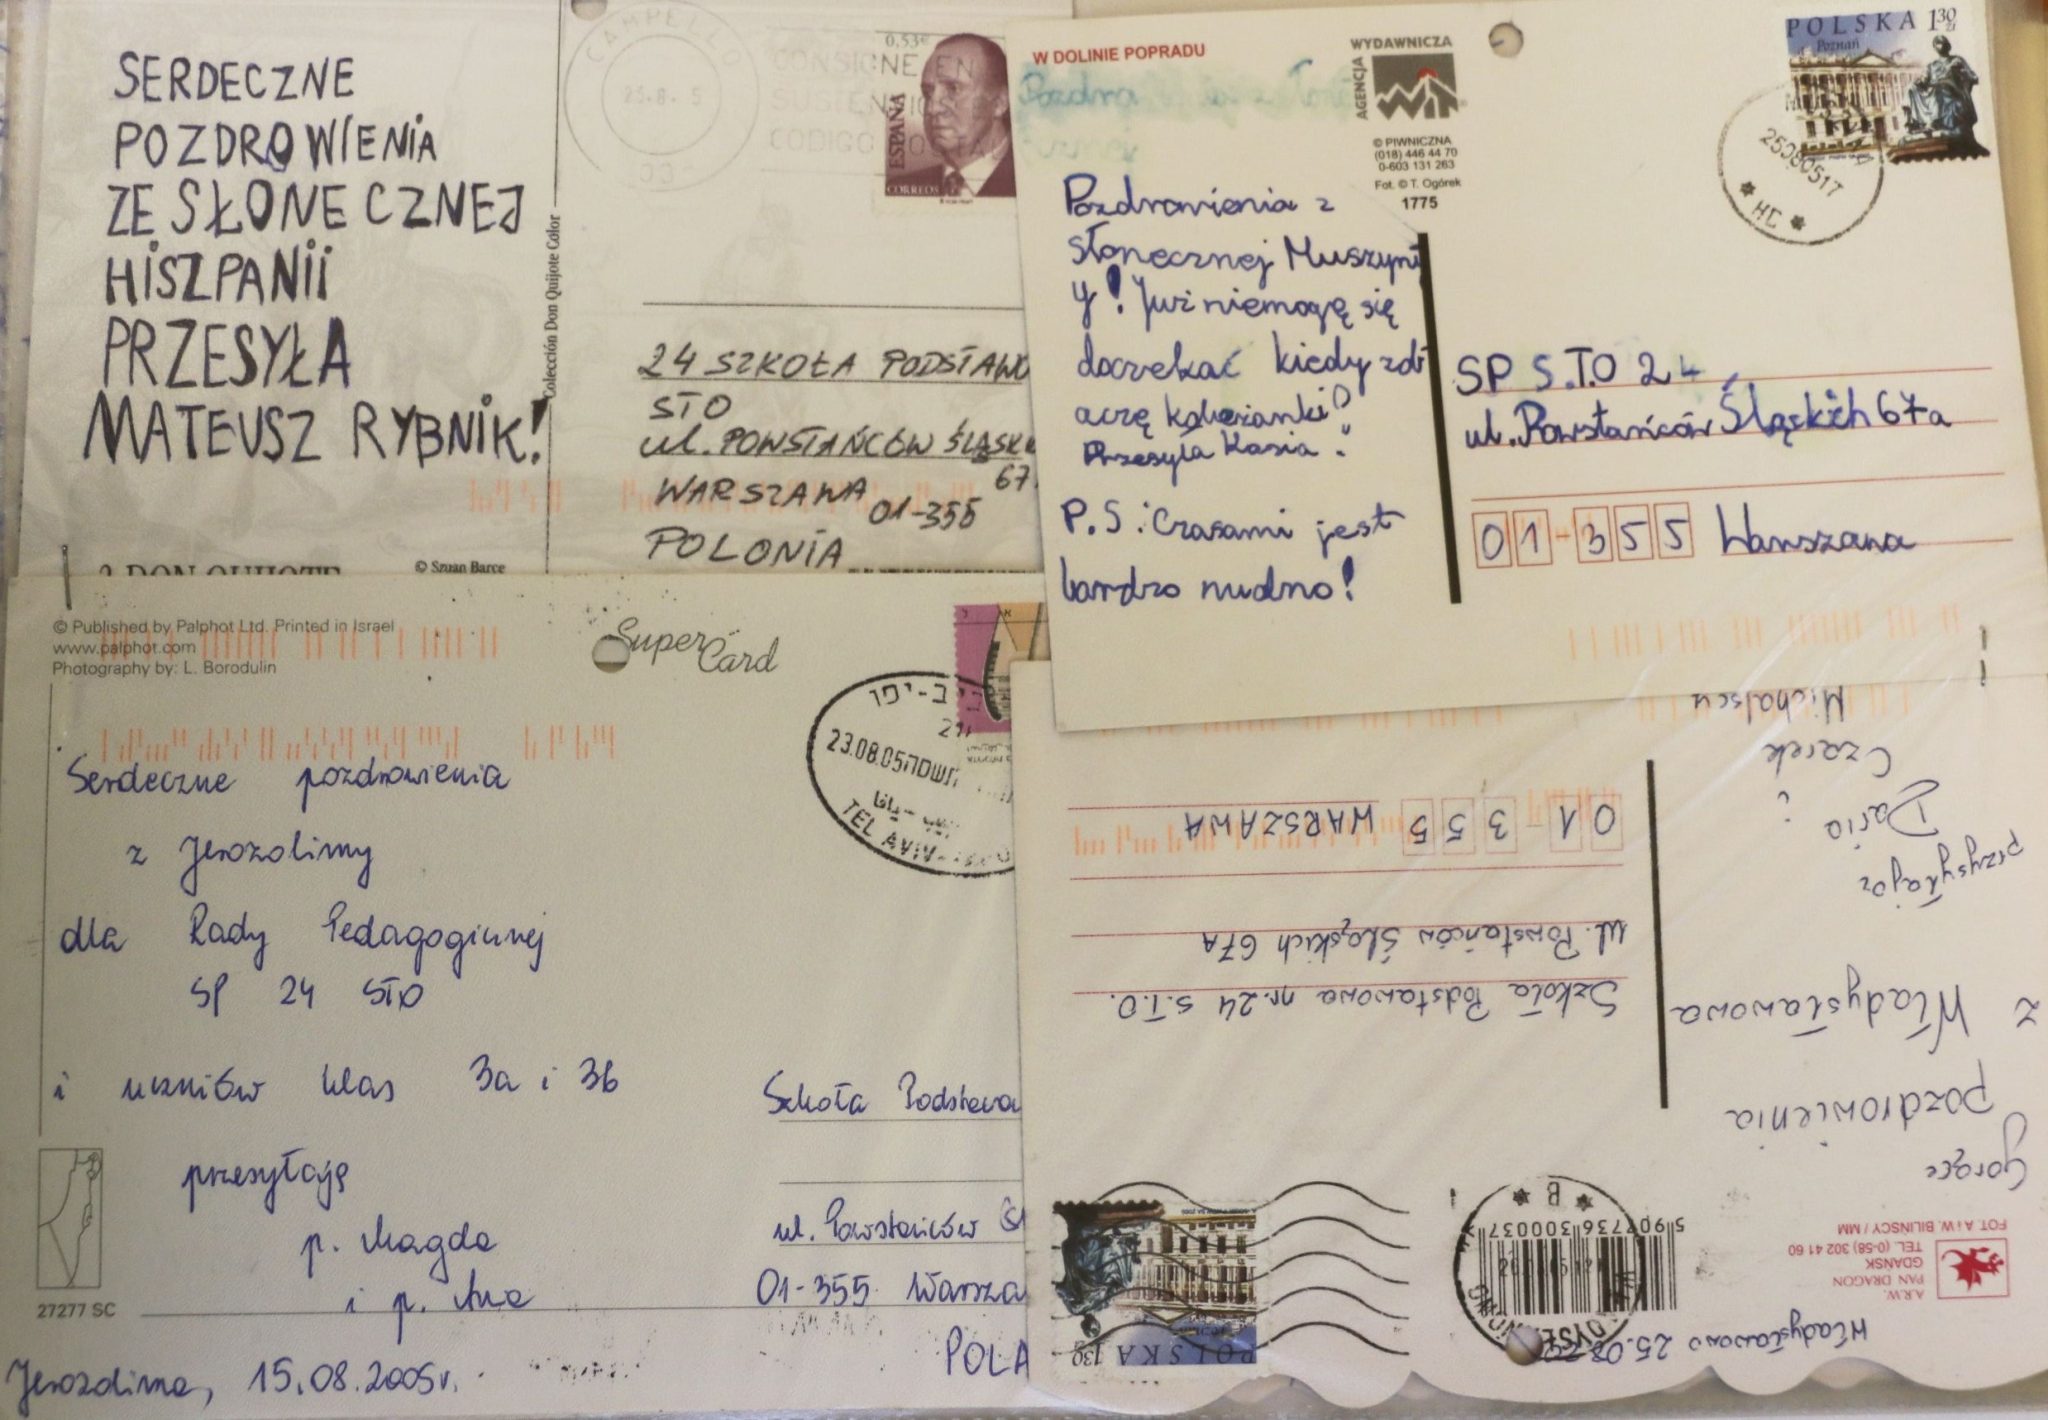 SERDECZNE
POZDROWIENIA
ZE SŁONECZNEJ
HISZPANII
PRZESYŁA
MATEUSZ RYBNIK!
Colección Don Quijote Color
© Szuan Barce
DON QUIJOTE
0,53€
ESPAÑA
CORREOS
CONSIGNE EN
CODIGO POSTAL
24 SZKOŁA PODSTAWO
STO
ul. POWSTAŃCÓW ŚLĄSK
67
WARSZAWA
01-355
POLONIA
W DOLINIE POPRADU
AGENCJA
WYDAWNICZA
WiT
© PIWNICZNA
(018) 446 44 70
0-603 131 263
Fot. © T. Ogórek
1775
POLSKA 130 zł
Poznań
25080517
Pozdrowienia z
słonecznej Muszyn
y! Już niemogę się
doczekać kiedy zob
aczę koleżanki?
Przesyła Kasia.
P.S: Czasami jest
bardzo nudno!
SP S.T.O 24
ul. Powstańców Śląskich 67a
01-355 Warszawa
© Published by Palphot Ltd. Printed in Israel
www.palphot.com
Photography by: L. Borodulin
Super Card
23.08.05
TEL AVIV-
Serdeczne pozdrowienia
z Jerozolimy
dla Rady Pedagogicznej
SP 24 STO
i uczniów klas 3a i 3b
przesyłają
p. Magda
i p. Ana
27277 SC
Jerozolima, 15.08.2005r.
Szkoła Podstawow
ul. Powstańców Śl
01-355 Warsza
POLA
Władysławowo 25.08
A.R.W.
PAN DRAGON
GDAŃSK
TEL. (0-58) 302 41 60
FOT. A i W. BILIŃSCY / MM
5 907736 300037
POLSKA 130
Gorące
pozdrowienia
z Władysławowa
przysyłają
Daria
i
Czarek
Michalscy
Szkoła Podstawowa nr.24 S.T.O.
ul. Powstańców Śląskich 67A
01-355 WARSZAWA